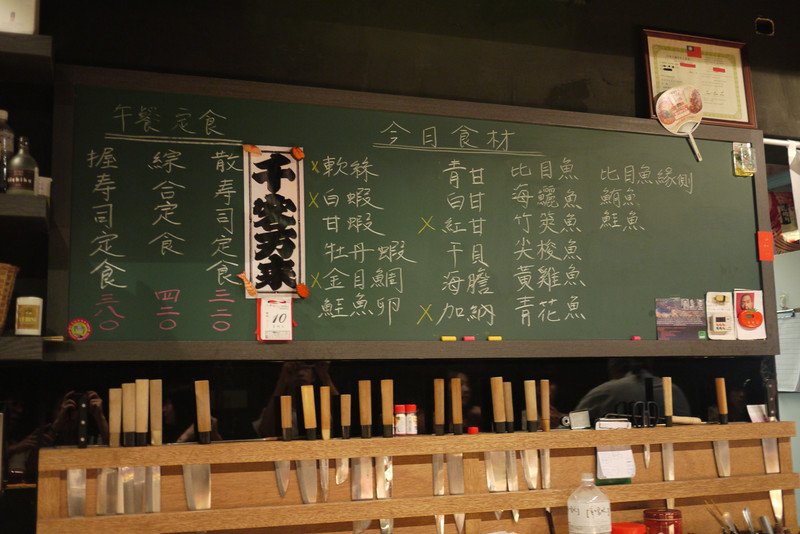 午餐定食
散壽司定食 三二〇
綜合定食 四二〇
握壽司定食 三八〇
千客万来
10
今日食材
x 軟絲
x 白蝦
甘蝦
牡丹蝦
x 金目鯛
鮭魚卵
青甘
白甘
x 紅甘
干貝
海膽
x 加納
比目魚
海鱺魚
竹筴魚
尖梭魚
黃雞魚
青花魚
比目魚緣側
鮪魚
鮭魚